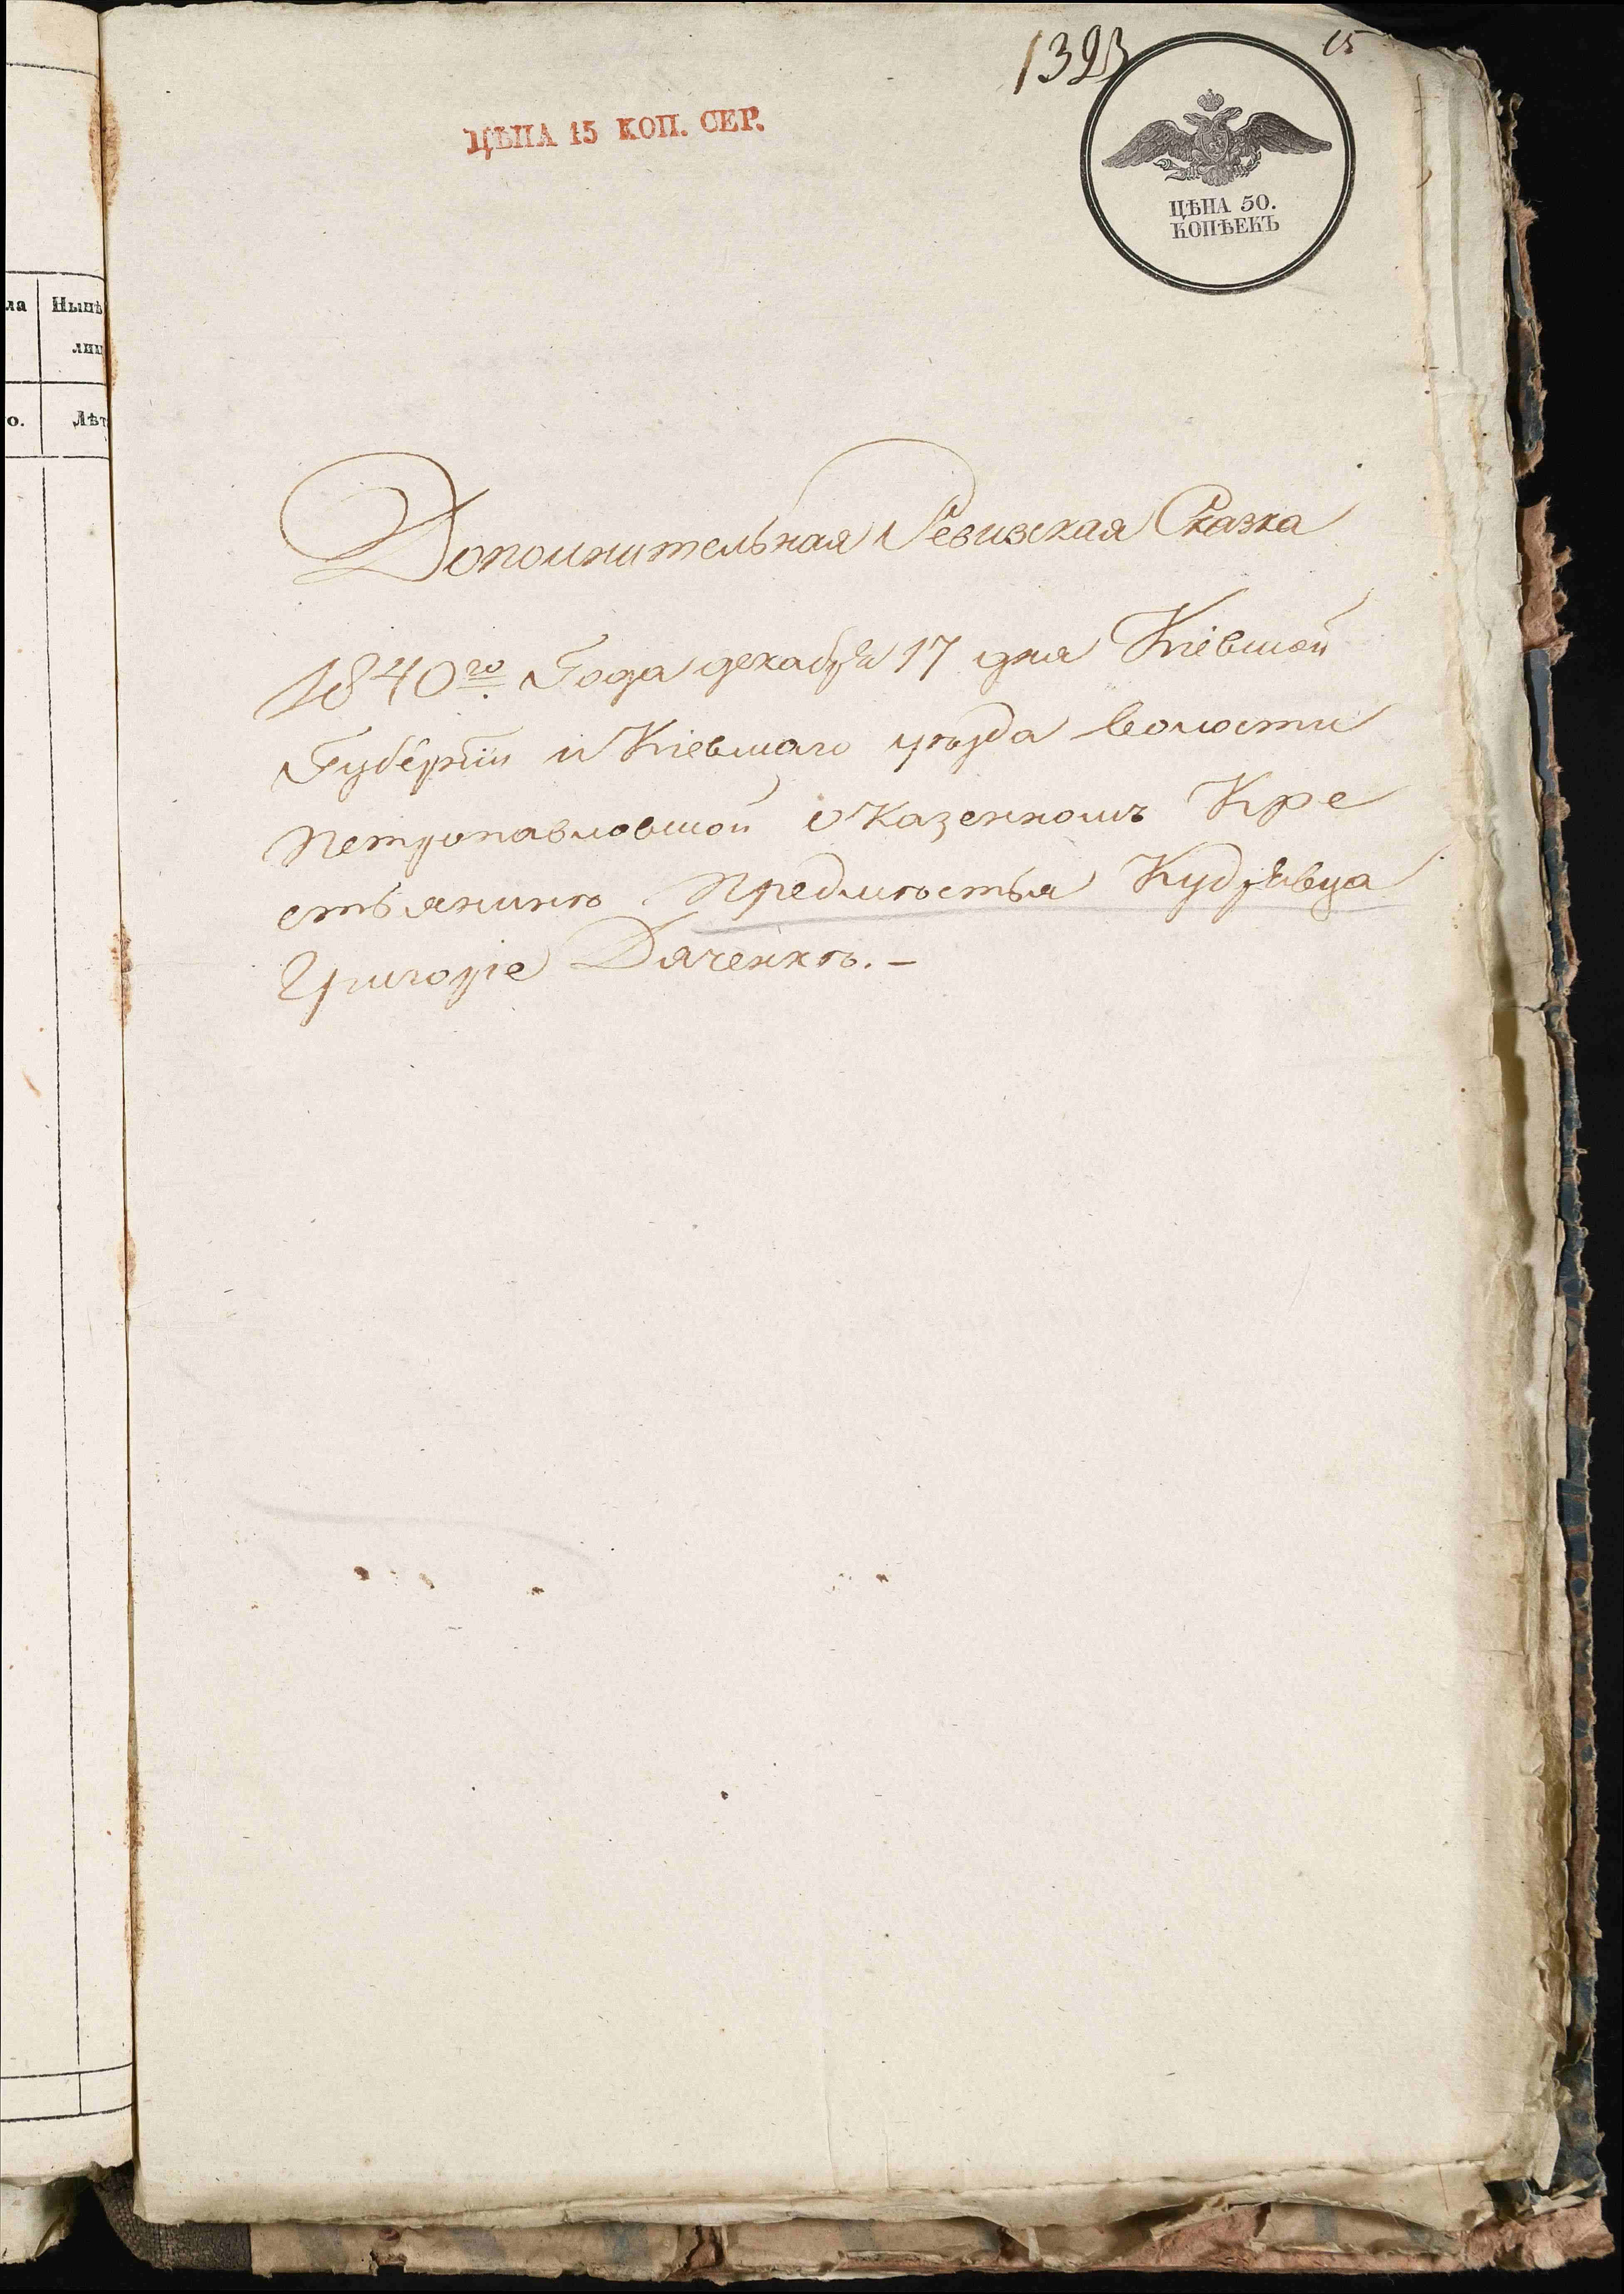 1393
15
ЦѢНА 15 КОП. СЕР.
ЦѢНА 50.
КОПѢЕКЪ
ла
Нынѣ
лиц
о.
Лѣт
Дополнительная Ревизская Сказка
1840го Года декабря 17 дня Кіевской
Губерніи и Кіевскаго уѣзда волости
Петропавловской о Казенномъ Кре
стьянинѣ Предмѣстья Кудрявца
Григоріе Дяченкѣ.-